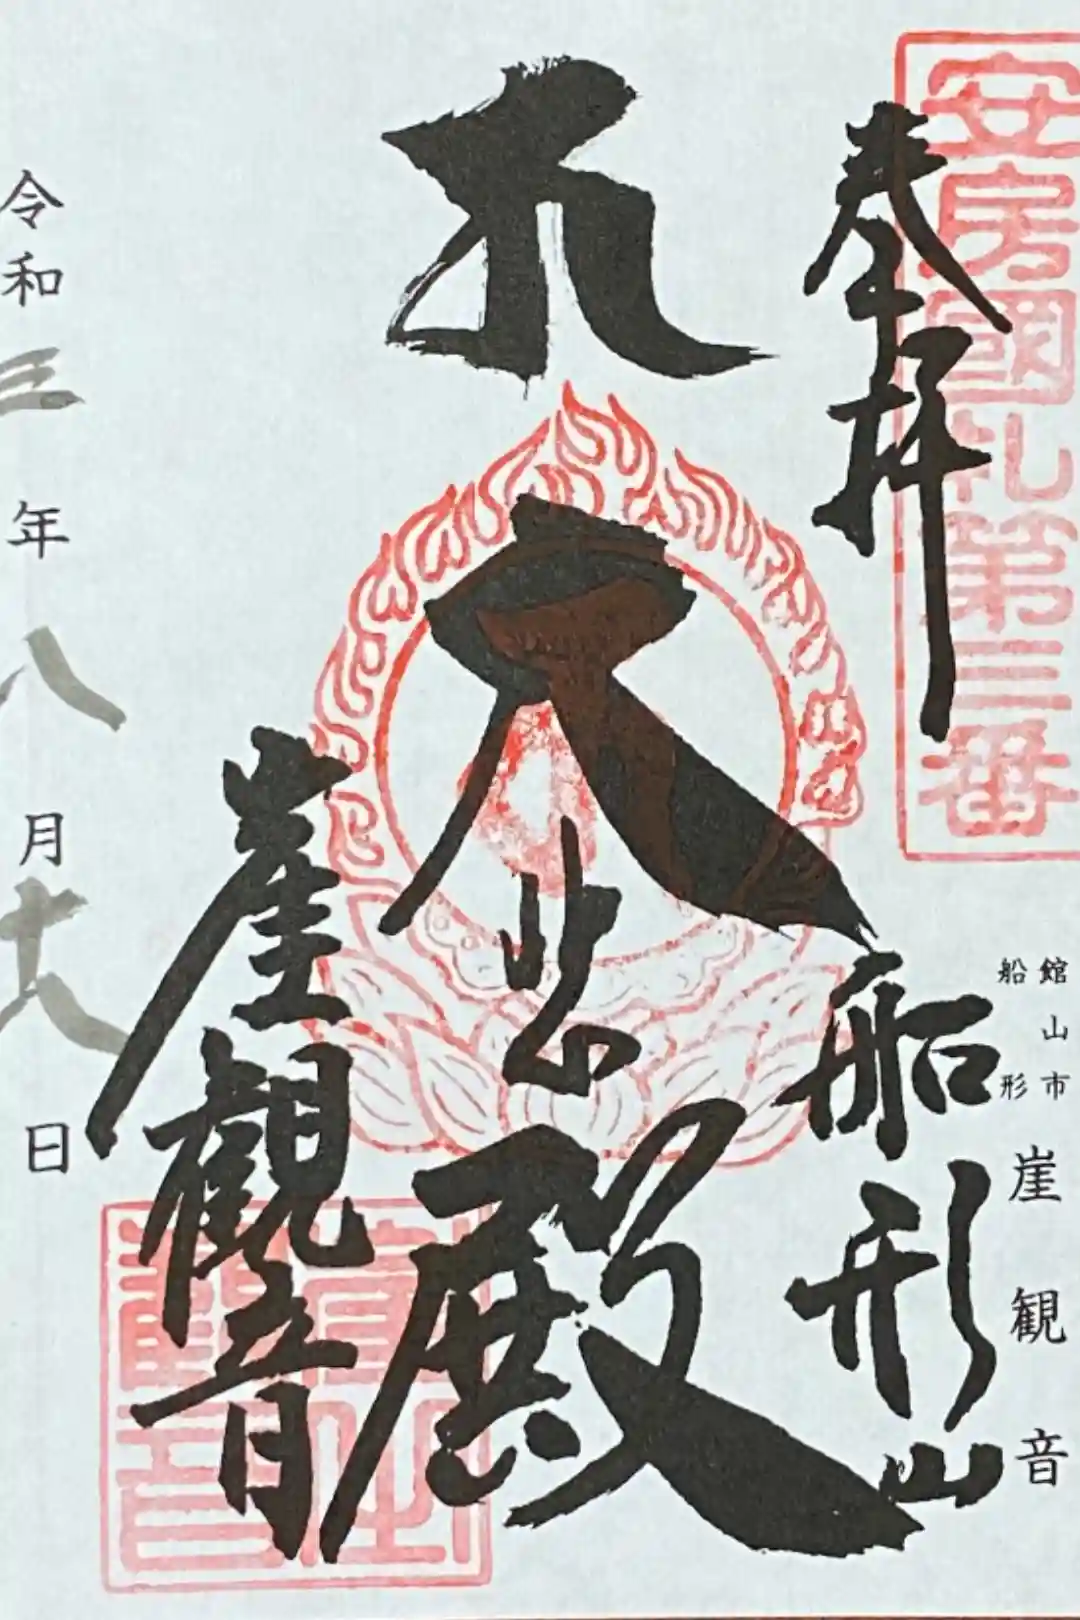 安房國札第三番
奉拝
館山市
船形
崖観音
船形山
大悲殿
崖觀音
令和三年八月十八日